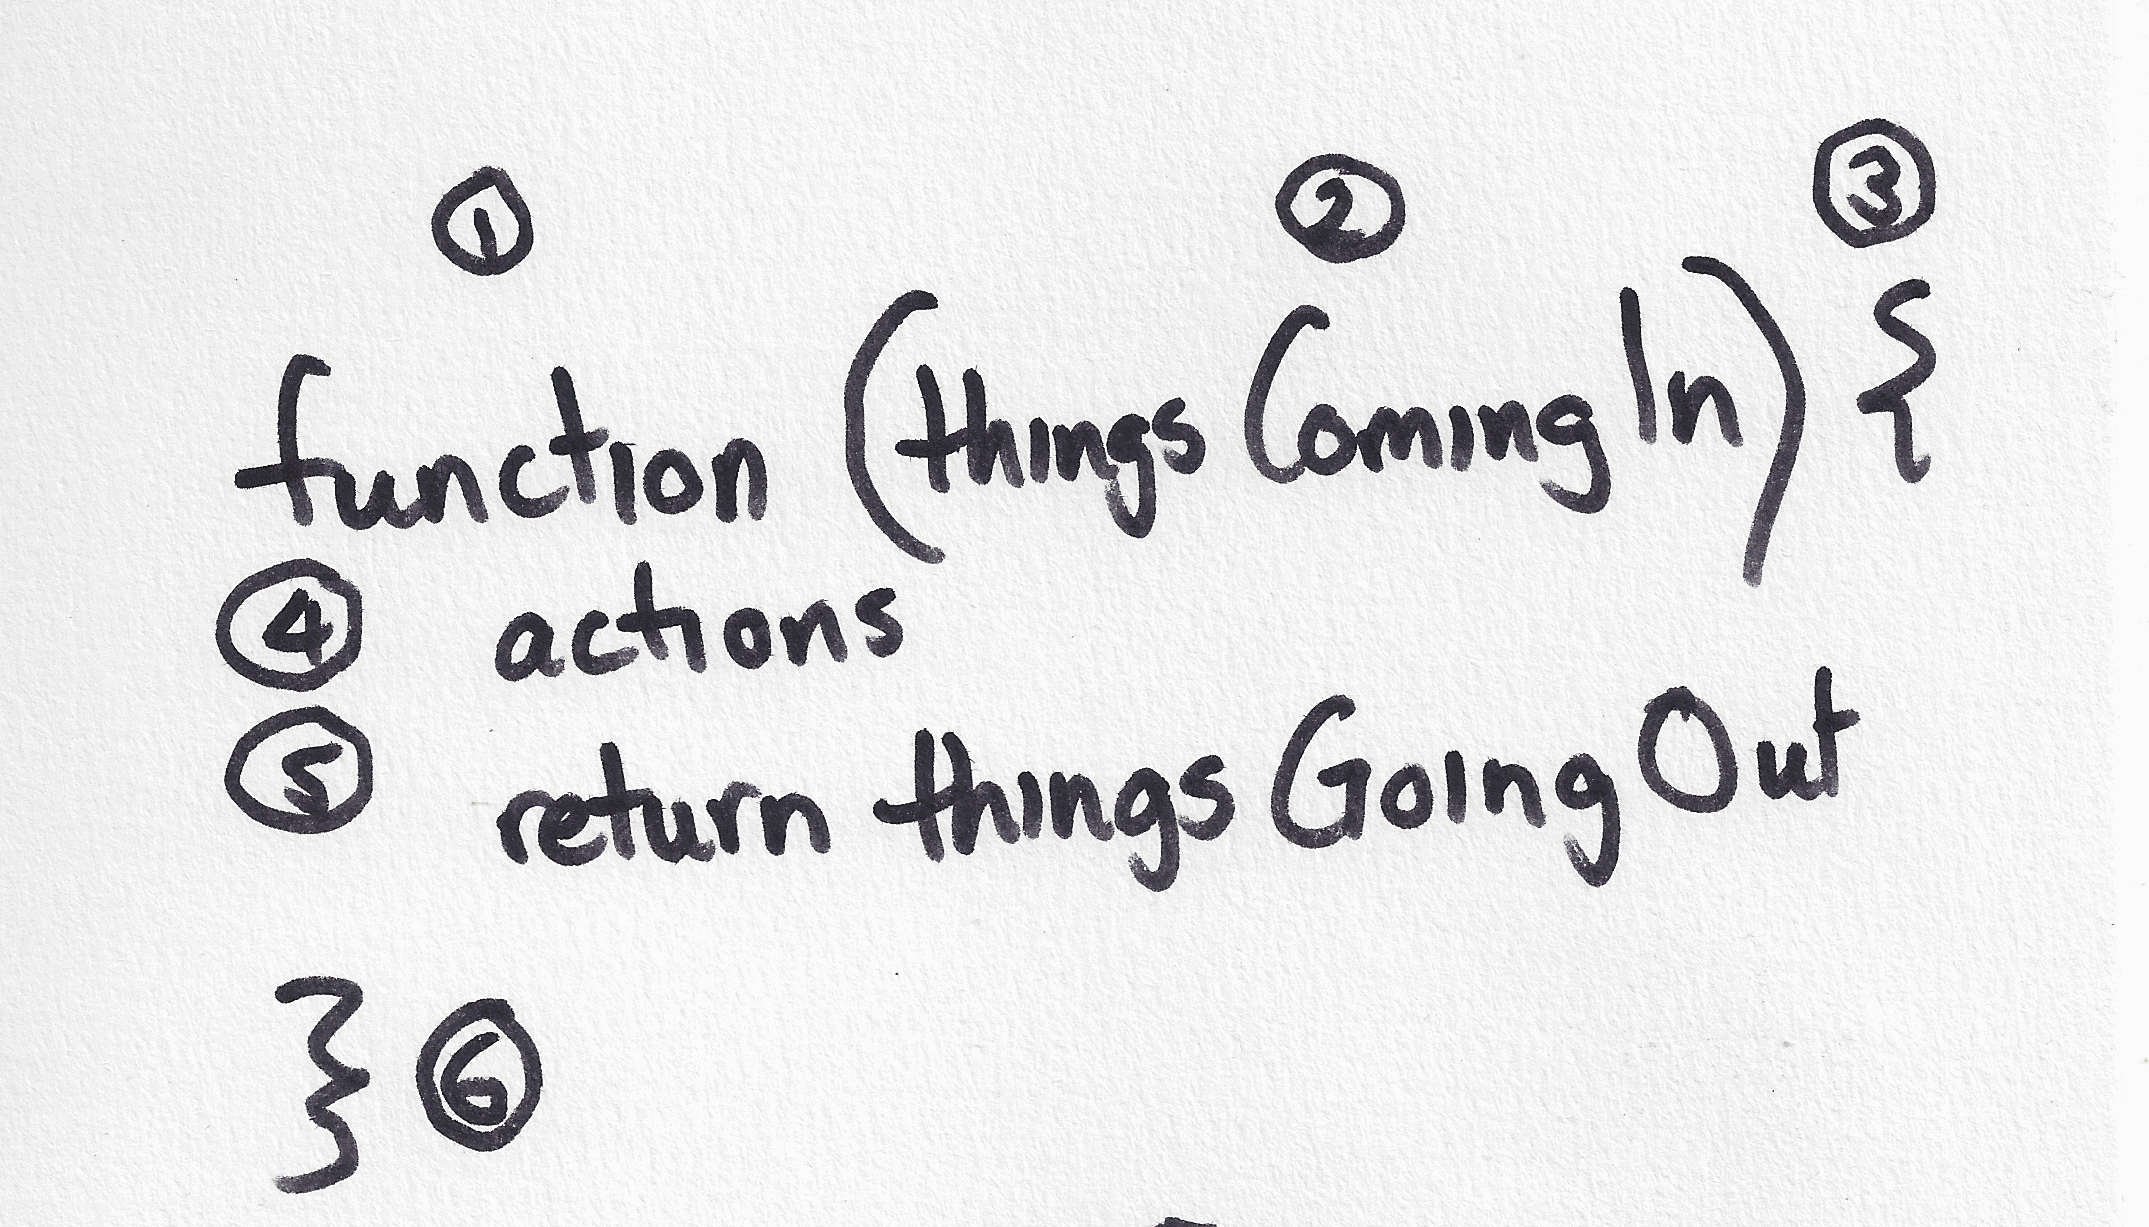 ① ② ③
function (things Coming In) {
④ actions
⑤ return things Going Out
} ⑥